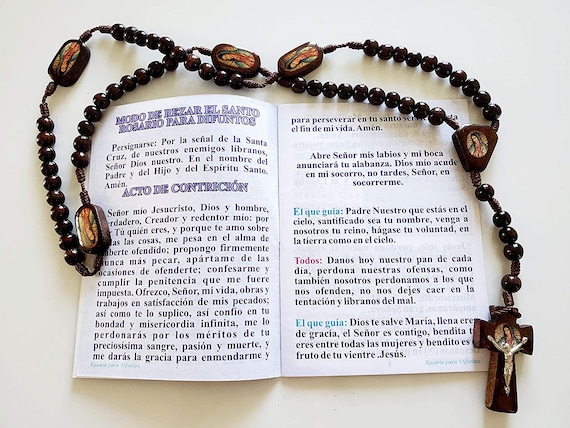 MODO DE REZAR EL SANTO
ROSARIO PARA DIFUNTOS
Persignarse: Por la señal de la Santa
Cruz, de nuestros enemigos libranos,
Señor Dios nuestro. En el nombre del
Padre y del Hijo y del Espíritu Santo.
Amén.
ACTO DE CONTRICIÓN
Señor mio Jesucristo, Dios y hombre,
verdadero, Creador y redentor mio: por
Tú quién eres, y porque te amo sobre
las cosas, me pesa en el alma de
haberte ofendido; propongo firmemente
nunca más pecar, apártame de las
ocasiones de ofenderte; confesarme y
cumplir la penitencia que me fuere
impuesta. Ofrezco, Señor, mi vida, obras y
trabajos en satisfacción de mis pecados;
así como te lo suplico, así confio en tu
bondad y misericordia infinita, me lo
perdonarás por los méritos de tu
preciosísima sangre, pasión y muerte, y
me darás la gracia para enmendarme y
Rosario para Difuntos
para perseverar en tu santo servicio hasta
el fin de mi vida. Amén.
Abre Señor mis labios y mi boca
anunciará tu alabanza. Dios mio acude
en mi socorro, no tardes, Señor, en
socorrerme.
El que guia: Padre Nuestro que estás en el
cielo, santificado sea tu nombre, venga a
nosotros tu reino, hágase tu voluntad, en
la tierra como en el cielo.
Todos: Danos hoy nuestro pan de cada
día, perdona nuestras ofensas, como
también nosotros perdonamos a los que
nos ofenden, no nos dejes caer en la
tentación y libranos del mal.
El que guia: Dios te salve Maria, llena eres
de gracia, el Señor es contigo, bendita tú
eres entre todas las mujeres y bendito es el
fruto de tu vientre .Jesús.
Rosario para Difuntos